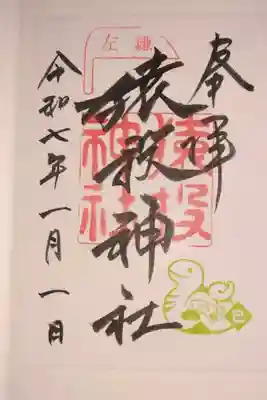 奉拝
猿投神社
令和七年一月一日
左鎌
猿投神社
巳